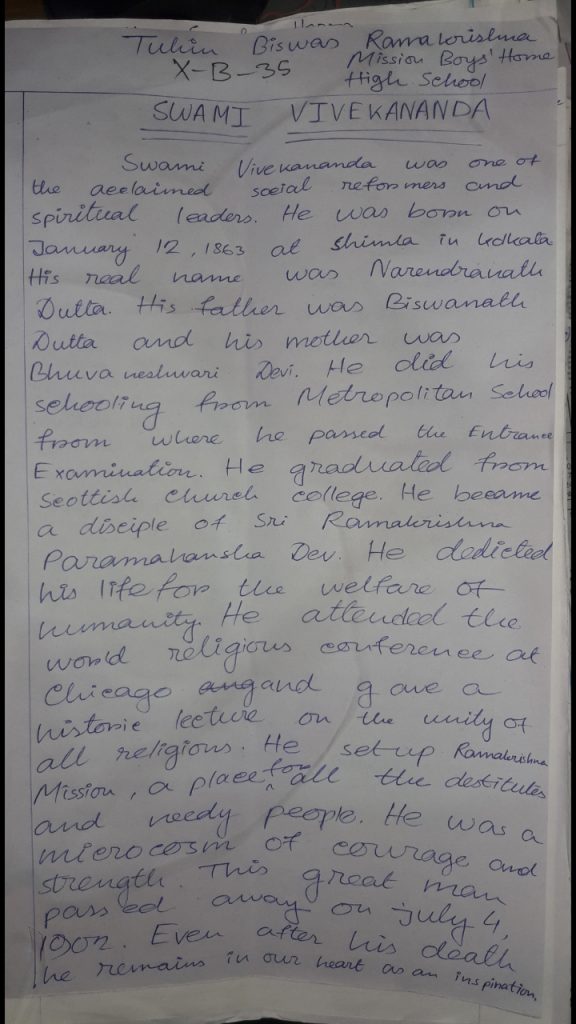 Tuhin Biswas Ramakrishna
X-B-35 Mission Boys' Home
High School
SWAMI VIVEKANANDA
Swami Vivekananda was one of
the acclaimed social reformers and
spiritual leaders. He was born on
January 12, 1863 at Shimla in Kolkata
His real name was Narendranath
Dutta. His father was Biswanath
Dutta and his mother was
Bhuvaneshwari Devi. He did his
schooling from Metropolitan School
from where he passed the Entrance
Examination. He graduated from
Scottish Church College. He became
a disciple of Sri Ramakrishna
Paramahansha Dev. He dedicted
his life for the welfare of
humanity. He attended the
world religious conference at
Chicago and gave a
historic lecture on the unity of
all religious. He set-up Ramakrishna
Mission, a place for all the destitutes
and needy people. He was a
microcosm of courage and
strength. This great man
passed away on july 4,
1902. Even after his death
he remains in our heart as an inspiration.